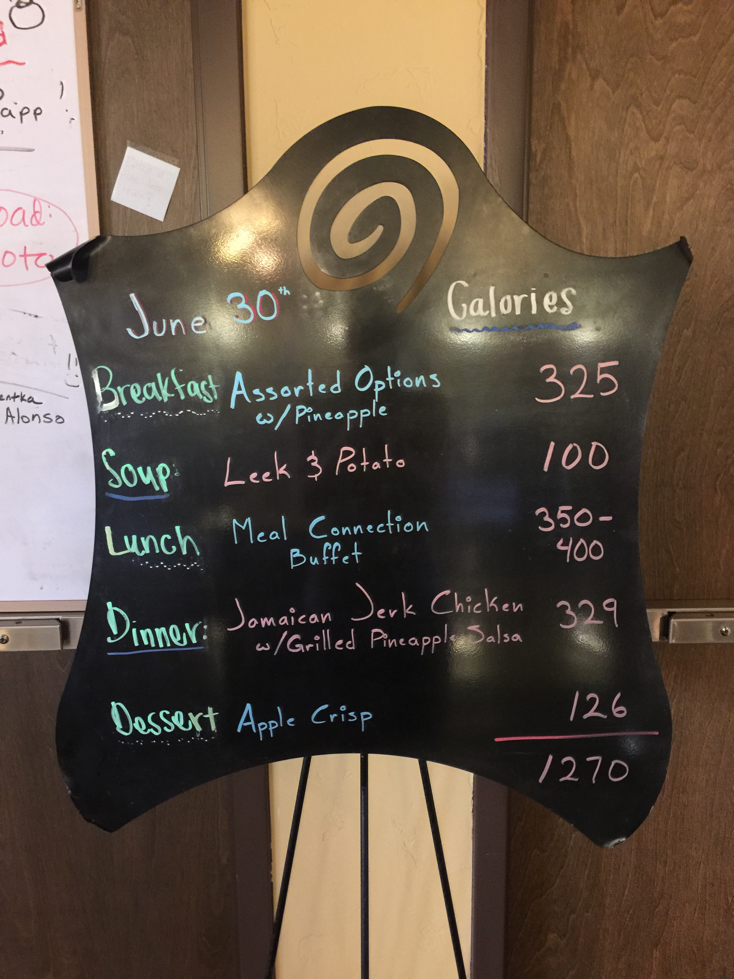 app
oad:
entka
Alonso
June 30th
Calories
Breakfast Assorted Options 325
w/Pineapple
Soup: Leek & Potato 100
Lunch Meal Connection 350-
Buffet 400
Dinner: Jamaican Jerk Chicken 329
w/Grilled Pineapple Salsa
Dessert Apple Crisp 126
1270